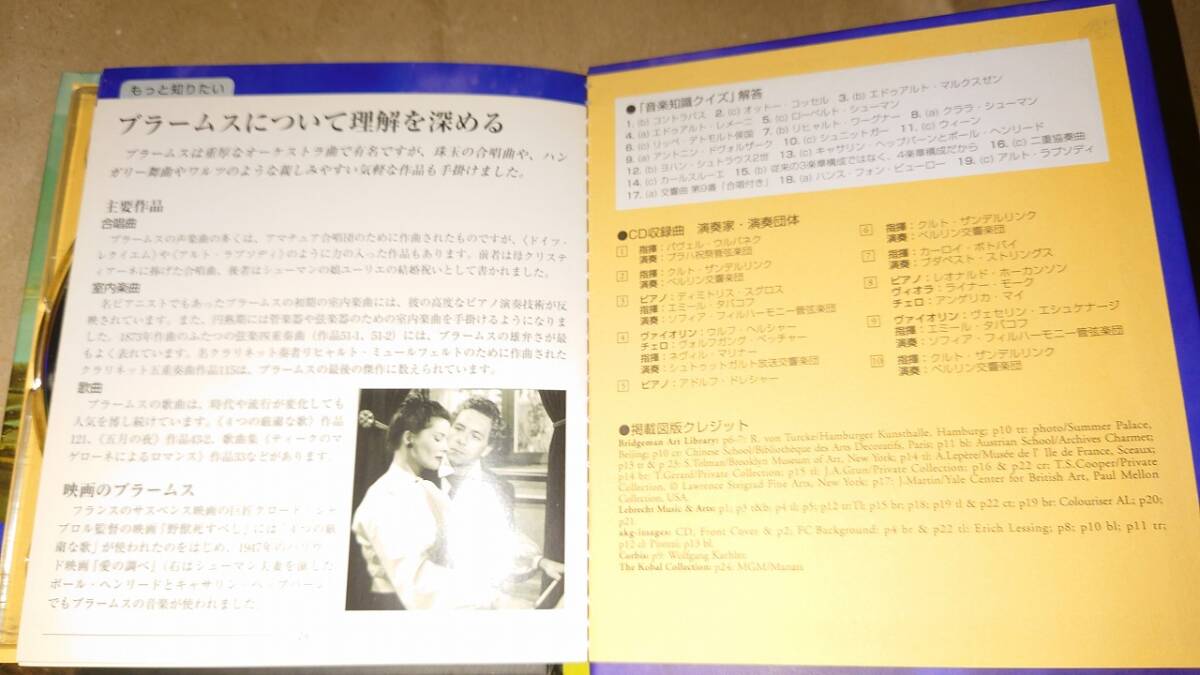 もっと知りたい
ブラームスについて理解を深める
ブラームスは重厚なオーケストラ曲で有名ですが、珠玉の合唱曲や、ハン
ガリー舞曲やワルツのような親しみやすい気軽な作品も手掛けました。
主要作品
合唱曲
ブラームスの声楽曲の多くは、アマチュア合唱団のために作曲されたものですが、《ドイツ・
レクイエム》や《アルト・ラプソディ》のように力の入った作品もあります。前者は母クリスティ
アーネに捧げた合唱曲、後者はシューマンの娘ユーリエの結婚祝いとして書かれました。
室内楽曲
名ピアニストでもあったブラームスの初期の室内楽曲には、彼の高度なピアノ演奏技術が反
映されています。また、円熟期には管楽器や弦楽器のための室内楽曲を手掛けるようになりま
した。1873年作曲のふたつの弦楽四重奏曲（作品51-1、51-2）には、ブラームスの雄弁さが最
もよく表れています。名クラリネット奏者リヒャルト・ミュールフェルトのために作曲された
クラリネット五重奏曲作品115は、ブラームスの最後の傑作に数えられています。
歌曲
ブラームスの歌曲は、時代や流行が変化しても
人気を博し続けています。《4つの厳粛な歌》作品
121、《五月の夜》作品43-2、歌曲集《ティークのマ
ゲローネによるロマンス》作品33などがあります。
映画のブラームス
フランスのサスペンス映画の巨匠クロード・シャ
ブロル監督の映画『野獣死すべし』には《4つの厳
粛な歌》が使われたのをはじめ、1947年のハリウッ
ド映画『愛の調べ』（右はシューマン夫妻を演じた
ポール・ヘンリードとキャサリン・ヘップバーン）
でもブラームスの音楽が使われました。
24
●「音楽知識クイズ」解答
1. (b) コントラバス 2. (c) オットー・コッセル 3. (b) エドゥアルト・マルクスゼン
4. (a) エドゥアルト・レメーニ 5. (c) ローベルト・シューマン
6. (c) リッペ・デトモルト侯国 7. (b) リヒャルト・ワーグナー 8. (a) クララ・シューマン
9. (a) アントニン・ドヴォルザーク 10. (c) シュニットガー 11. (c) ウィーン
12. (b) ヨハン・シュトラウス2世 13. (c) キャサリン・ヘップバーンとポール・ヘンリード
14. (c) カールスルーエ 15. (b) 従来の3楽章構成ではなく、4楽章構成だから 16. (c) 二重協奏曲
17. (a) 交響曲 第9番「合唱付き」 18. (a) ハンス・フォン・ビューロー 19. (c) アルト・ラプソディ
●CD収録曲 演奏家・演奏団体
1 指揮：パヴェル・ウルバネク
演奏：プラハ祝祭管弦楽団
2 指揮：クルト・ザンデルリンク
演奏：ベルリン交響楽団
3 ピアノ：ディミトリス・スグロス
指揮：エミール・タバコフ
演奏：ソフィア・フィルハーモニー管弦楽団
4 ヴァイオリン：ウルフ・ヘルシャー
チェロ：ヴォルフガング・ベッチャー
指揮：ネヴィル・マリナー
演奏：シュトゥットガルト放送交響楽団
5 ピアノ：アドルフ・ドレシャー
6 指揮：クルト・ザンデルリンク
演奏：ベルリン交響楽団
7 指揮：カーロイ・ボトバイ
演奏：ブダペスト・ストリングス
8 ピアノ：レオナルド・ホーカンソン
ヴィオラ：ライナー・モーク
チェロ：アンゲリカ・マイ
9 ヴァイオリン：ヴェセリン・エシュケナージ
指揮：エミール・タバコフ
演奏：ソフィア・フィルハーモニー管弦楽団
10 指揮：クルト・ザンデルリンク
演奏：ベルリン交響楽団
●掲載図版クレジット
Bridgeman Art Library: p6-7: R. von Turcke/Hamburger Kunsthalle, Hamburg; p10 tr: photo/Summer Palace,
Beijing; p10 cr: Chinese School/Bibliothèque des Arts Decoratifs, Paris; p11 bl: Austrian School/Archives Charmet;
p13 tr & p23: S.Tolman/Brooklyn Museum of Art, New York; p14 tl: A.Lepère/Musée de l' Ile de France, Sceaux;
p14 br: T.Gerard/Private Collection; p15 tl: J.A.Grun/Private Collection; p16 & p22 cr: T.S.Cooper/Private
Collection, © Lawrence Steigrad Fine Arts, New York; p17: J.Martin/Yale Center for British Art, Paul Mellon
Collection, USA.
Lebrecht Music & Arts: p1; p3 t&b; p4 tl; p5; p12 tr/Th; p15 br; p18; p19 tl & p22 ct; p19 br: Colouriser AL; p20;
p21.
akg-images: CD, Front Cover & p2; FC Background; p4 br & p22 tl: Erich Lessing; p8; p10 bl; p11 tr;
p12 cl: Pirozzi; p13 bl.
Corbis: p9: Wolfgang Kaehler.
The Kobal Collection: p24: MGM/Manatt